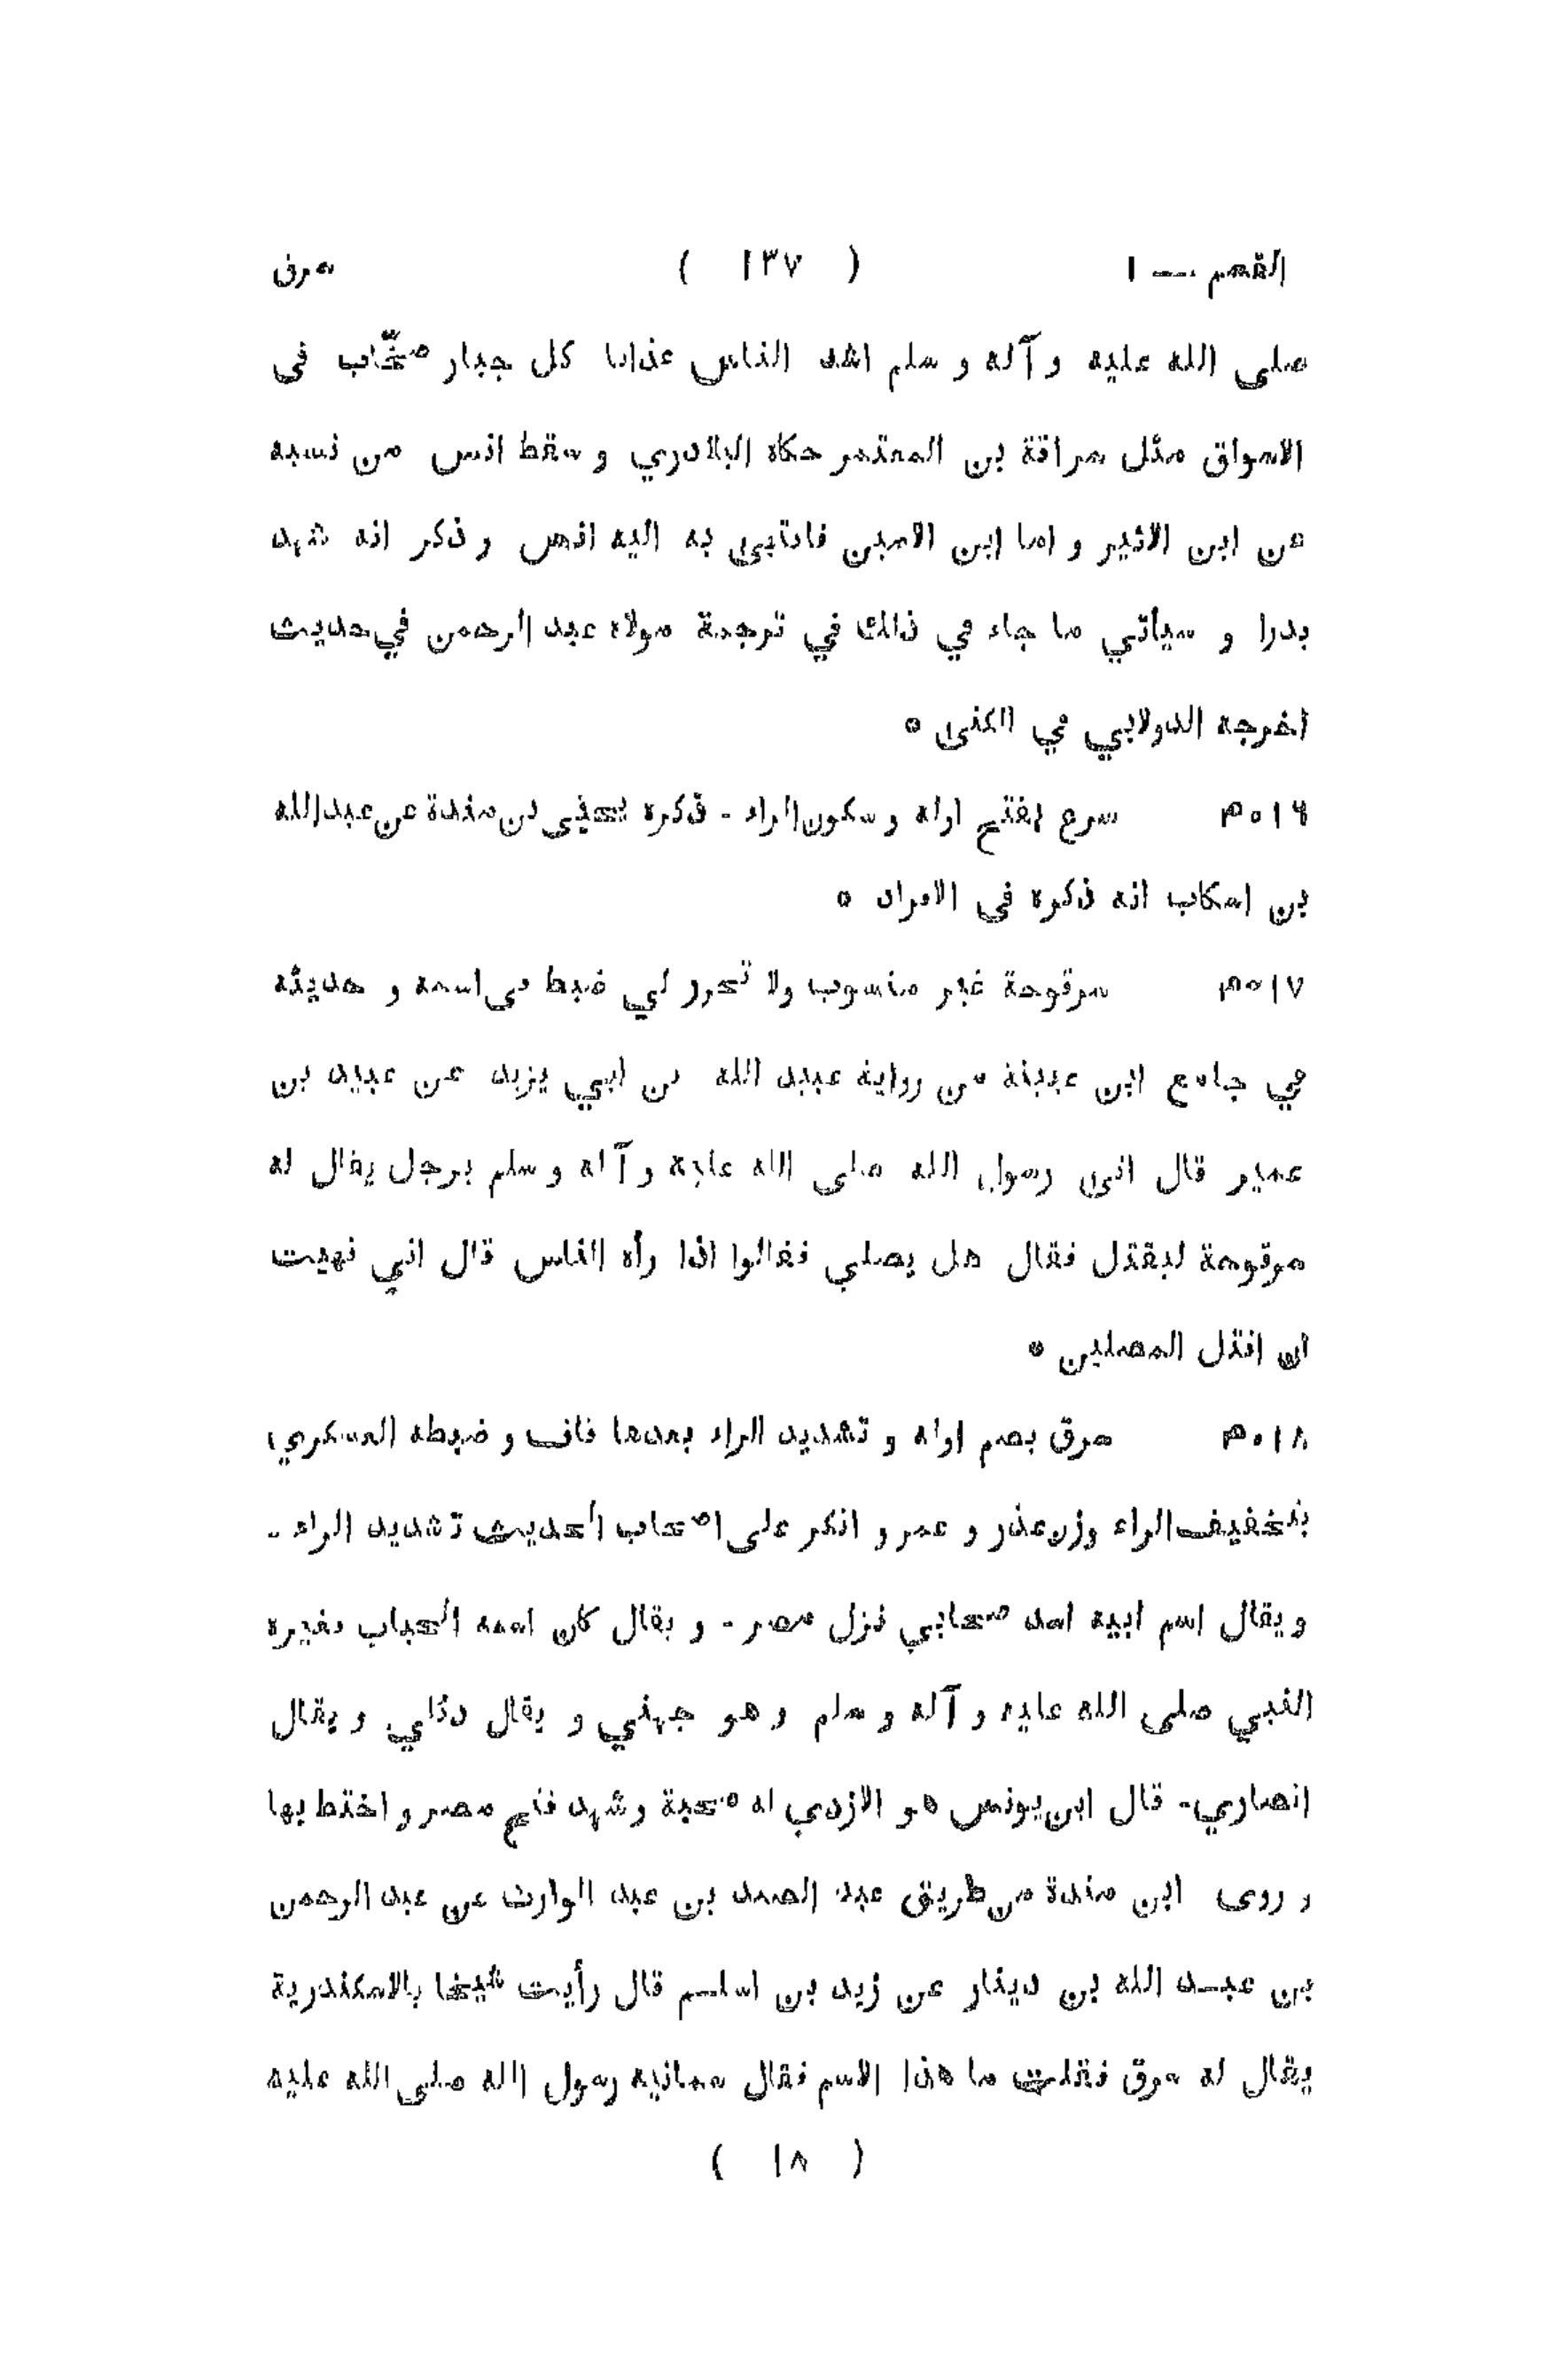 القسم — ١ ( ١٣٧ ) سرق
صلى الله عليه و آله و سلم اشد الناس عذابا كل جبار صخّاب فى
الاسواق مثل سراقة بن المعتمر حكاه البلاذري و سقط انس من نسبه
من ابن الاثير و اما ابن الامين فانتهى به اليه انس و ذكر انه شهد
بدرا و سيأتي ما جاء في ذلك في ترجمة مولاه عبد الرحمن في حديث
اخرجه الدولابي في الكنى *
٥٠١٦ سرع بفتح اوله و سكون الراء - ذكره يحيى بن مندة عن عبد الله
بن اسكاب انه ذكره فى الافراد *
٥٠١٧ سرقوحة غير منسوب ولا تحرر لي ضبط فى اسمه و حديثه
في جامع ابن عيينة من رواية عبيد الله بن ابي يزيد عن عبيد بن
عمير قال اتى رسول الله صلى الله عليه و آله و سلم برجل يقال له
سرقوحة ليقتل فقال هل يصلي فقالوا اذا رأه الناس قال اني نهيت
ان اقتل المصلين *
٥٠١٨ سرق بضم اوله و تشديد الراء بعدها قاف و ضبطه العسكري
بتخفيف الراء وزن غدر و عمر و انكر على اصحاب الحديث تشديد الراء -
و يقال اسم ابيه اسد صحابي نزل مصر - و يقال كان اسمه الحباب فغيره
النبي صلى الله عليه و آله و سلم و هو جهني و يقال دئلي و يقال
انصاري - قال ابن يونس هو الازدي له صحبة و شهد فتح مصر و اختط بها
و روى ابن مندة من طريق عبد الصمد بن عبد الوارث عن عبد الرحمن
بن عبد الله بن دينار عن زيد بن اسلم قال رأيت شيخا بالاسكندرية
يقال له سرق فقلت ما هذا الاسم فقال سمانيه رسول الله صلى الله عليه
( ١٨ )